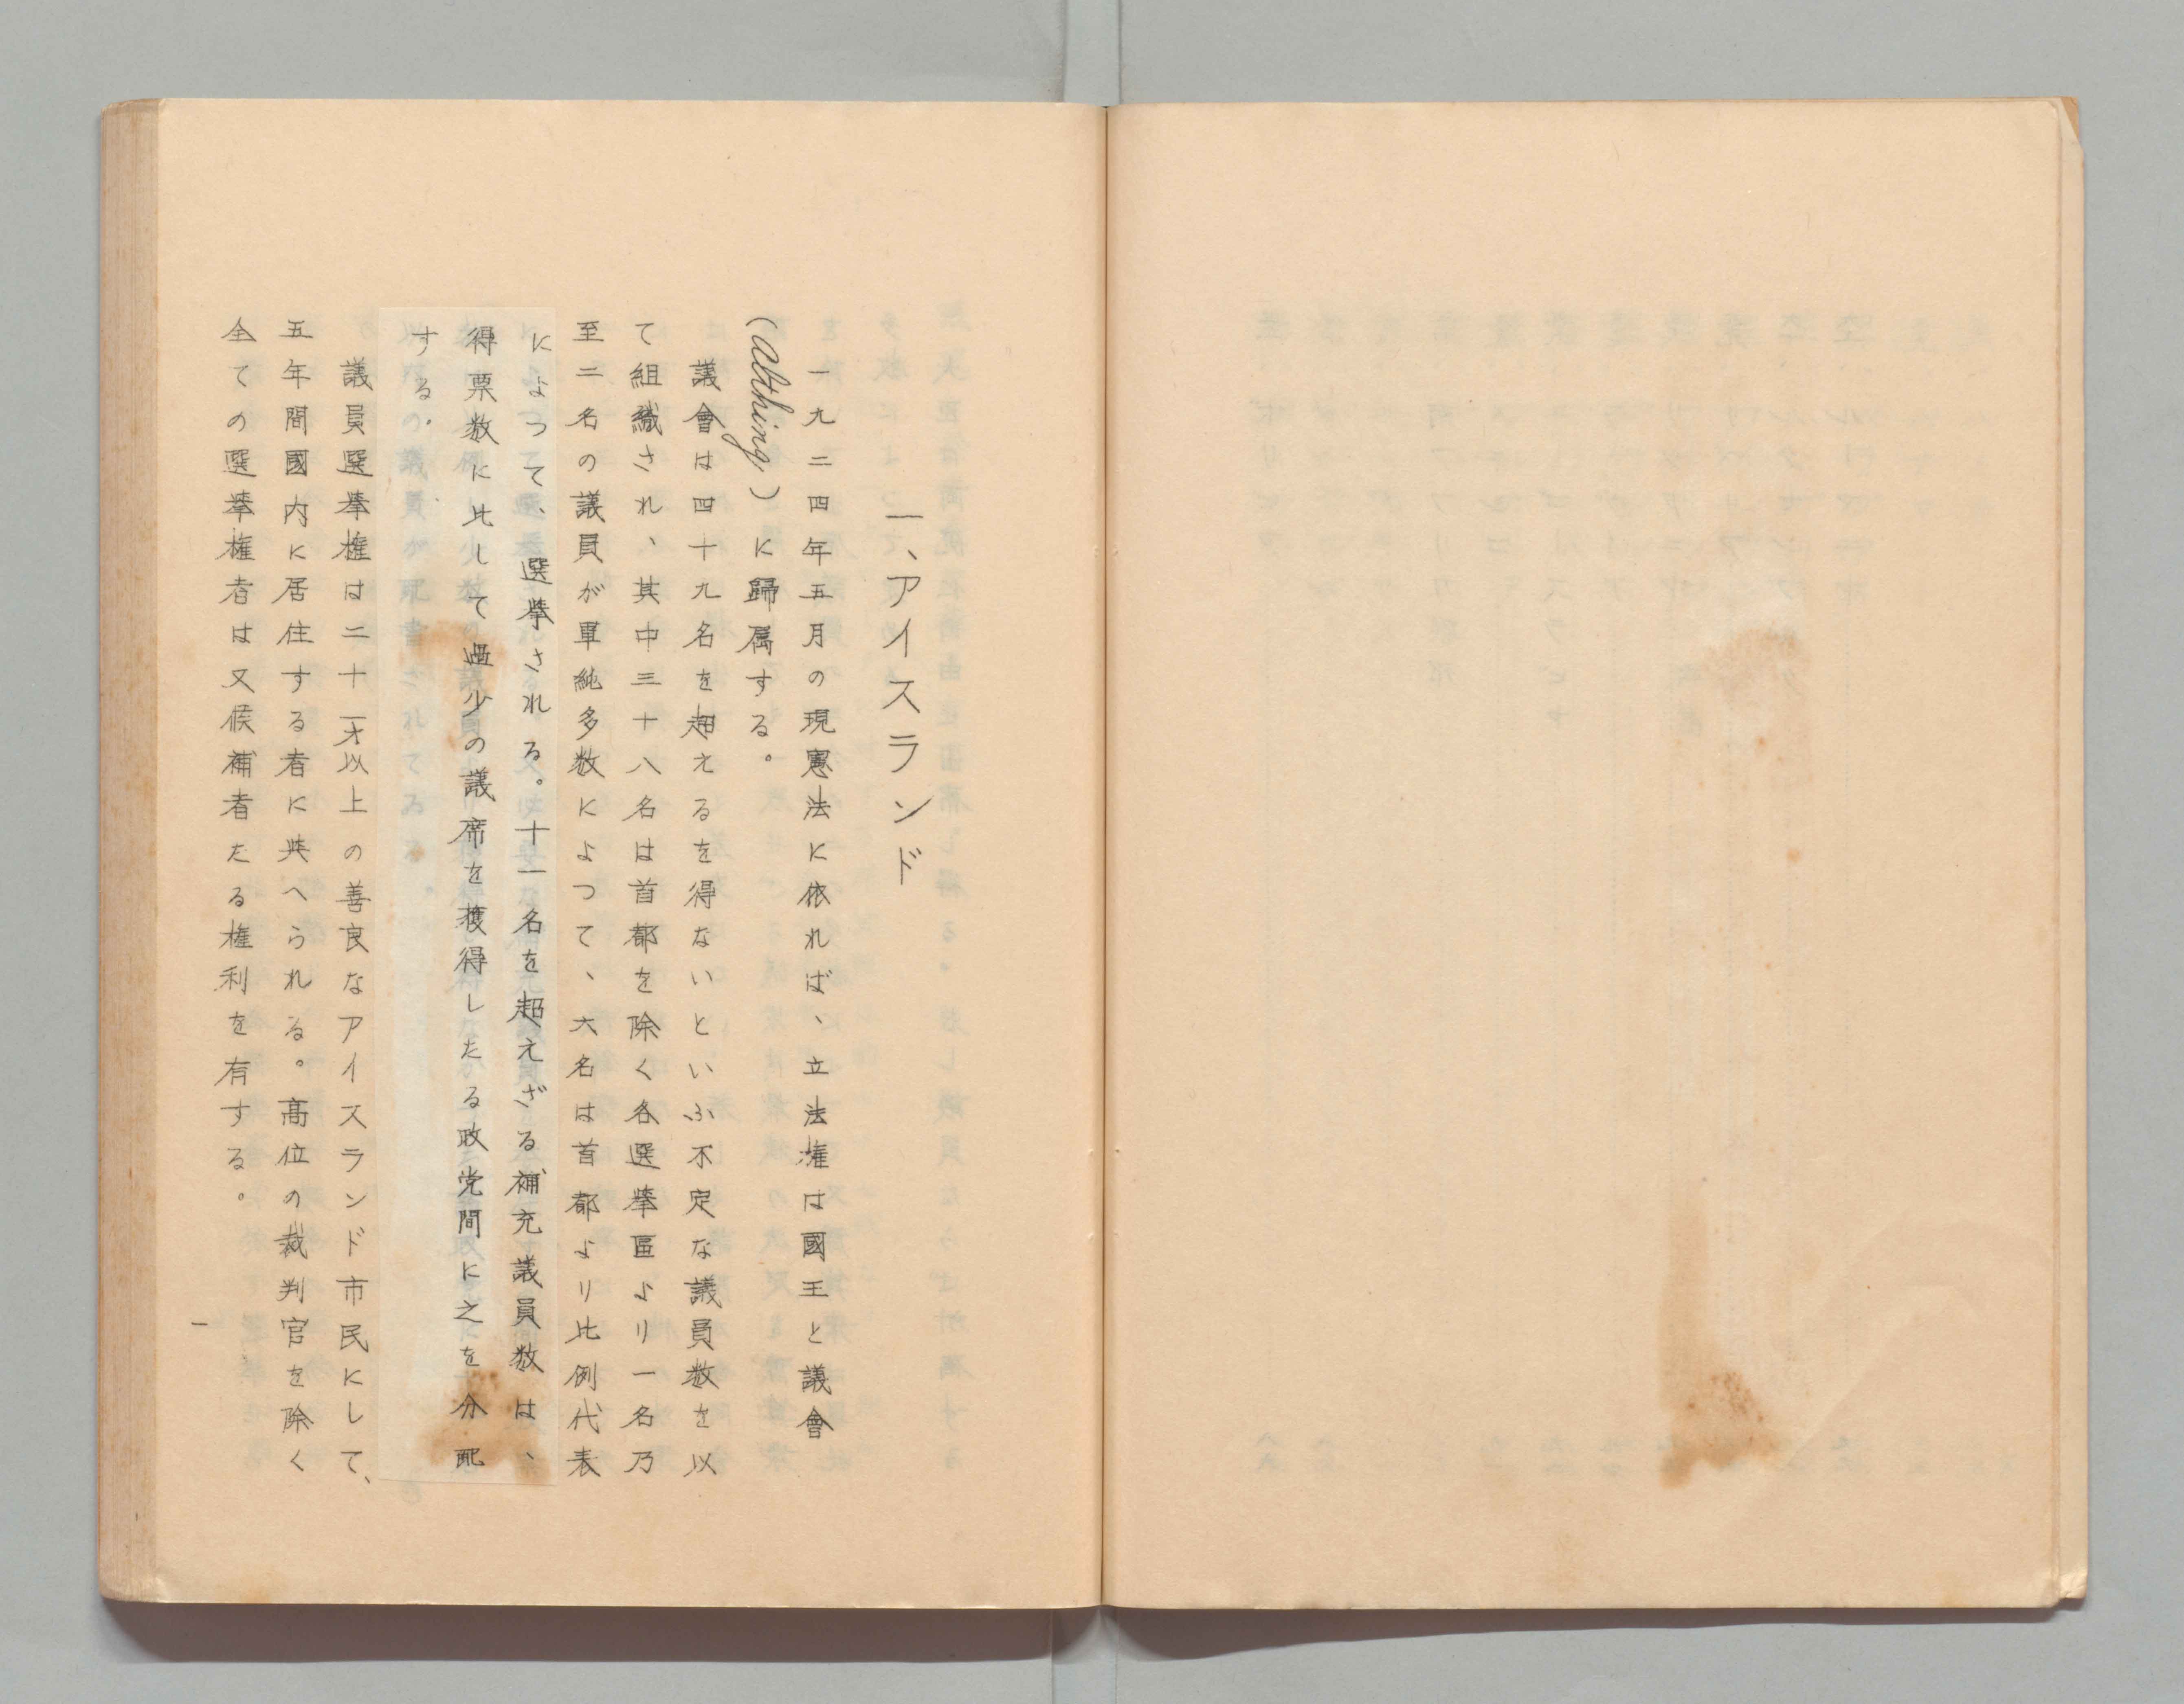 一、アイスランド
一九二四年五月の現憲法に依れば、立法権は國王と議會
(Althing,)に歸属する。
議會は四十九名を超えるを得ないといふ不定な議員数を以
て組織され、其中三十八名は首都を除く各選挙區より一名乃
至二名の議員が單純多数によつて、六名は首都より比例代表
によつて、選挙される。十一名を超えざる補充議員数は、
得票数に比して過少の議席を獲得したる政党間に之を分配
する。
議員選挙権は二十一才以上の善良なアイスランド市民にして、
五年間國内に居住する者に与へられる。高位の裁判官を除く
全ての選挙権者は又候補者たる権利を有する。
一